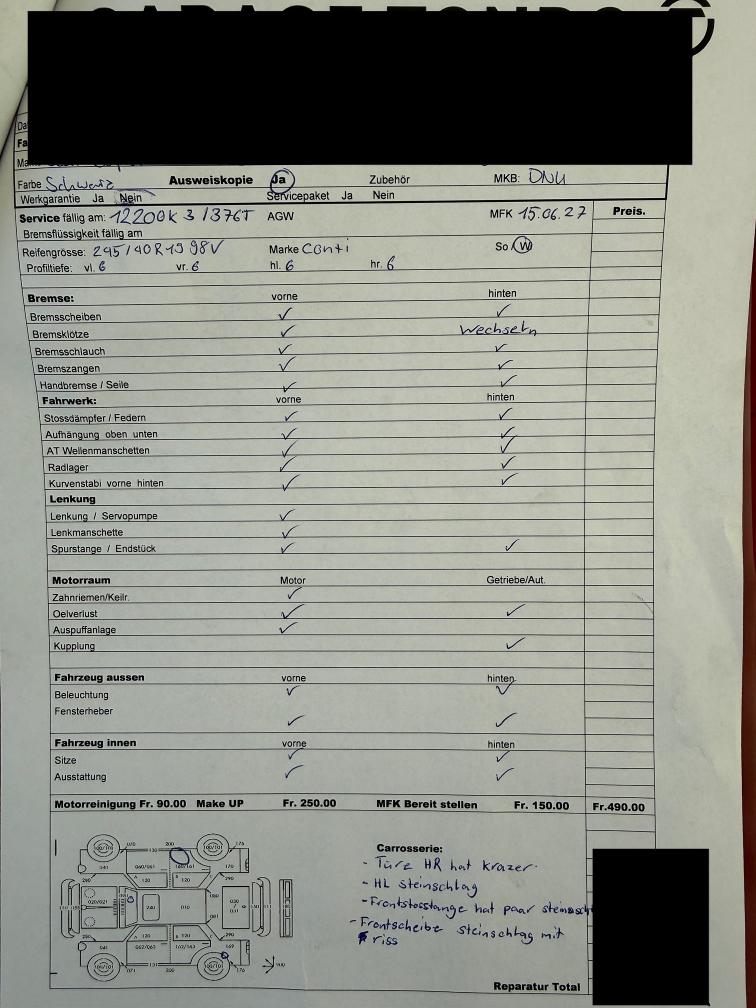 Farbe Schwarz Ausweiskopie Ja Zubehör MKB: DNU
Werkgarantie Ja Nein Servicepaket Ja Nein
Service fällig am: 12200K 3 /376T AGW MFK 15.06.27 Preis.
Bremsflüssigkeit fällig am
Reifengrösse: 245/40R19 98V Marke Conti So/W
Profiltiefe: vl. 6 vr. 6 hl. 6 hr. 6
Bremse: vorne hinten
Bremsscheiben ✓ ✓
Bremsklötze ✓ Wechseln
Bremsschlauch ✓ ✓
Bremszangen ✓ ✓
Handbremse / Seile ✓ ✓
Fahrwerk: vorne hinten
Stossdämpfer / Federn ✓ ✓
Aufhängung oben unten ✓ ✓
AT Wellenmanschetten ✓ ✓
Radlager ✓ ✓
Kurvenstabi vorne hinten ✓ ✓
Lenkung
Lenkung / Servopumpe ✓
Lenkmanschette ✓
Spurstange / Endstück ✓ ✓
Motorraum Motor Getriebe/Aut.
Zahnriemen/Keilr. ✓
Oelverlust ✓ ✓
Auspuffanlage ✓
Kupplung ✓
Fahrzeug aussen vorne hinten
Beleuchtung ✓ ✓
Fensterheber ✓ ✓
Fahrzeug innen vorne hinten
Sitze ✓ ✓
Ausstattung ✓ ✓
Motorreinigung Fr. 90.00 Make UP Fr. 250.00 MFK Bereit stellen Fr. 150.00 Fr.490.00
Carrosserie:
- Türe HR hat krazer.
- HL steinschlag
- Frontstosstange hat paar steinsch
- Frontscheibe steinschlag mit
riss
Reparatur Total